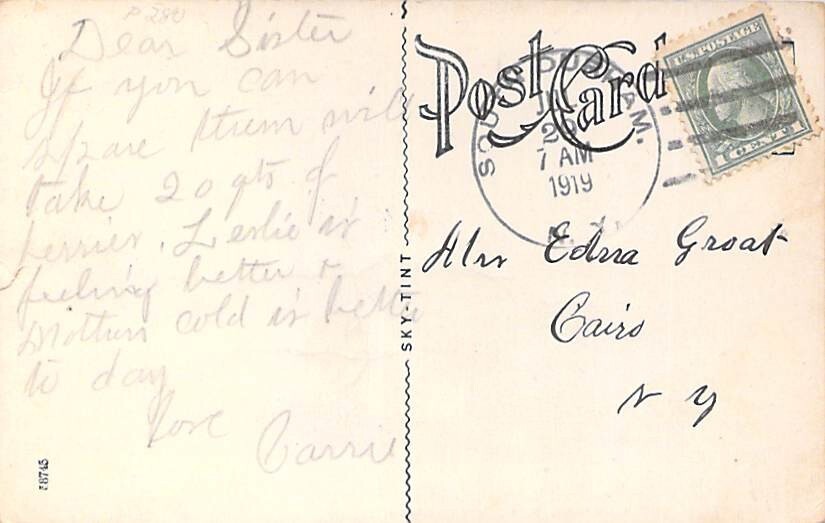 Dear Sister
If you can
spare them will
take 20 qts of
berries. Leslie is
feeling better &
Mothers cold is better
to day
love
Carrie
58745
SKY-TINT
Post Card
SOUTH DURHAM.
20
7 AM
1919
N. Y.
U.S. POSTAGE
1 CENT 1
Mrs Edna Groat
Cairo
N Y